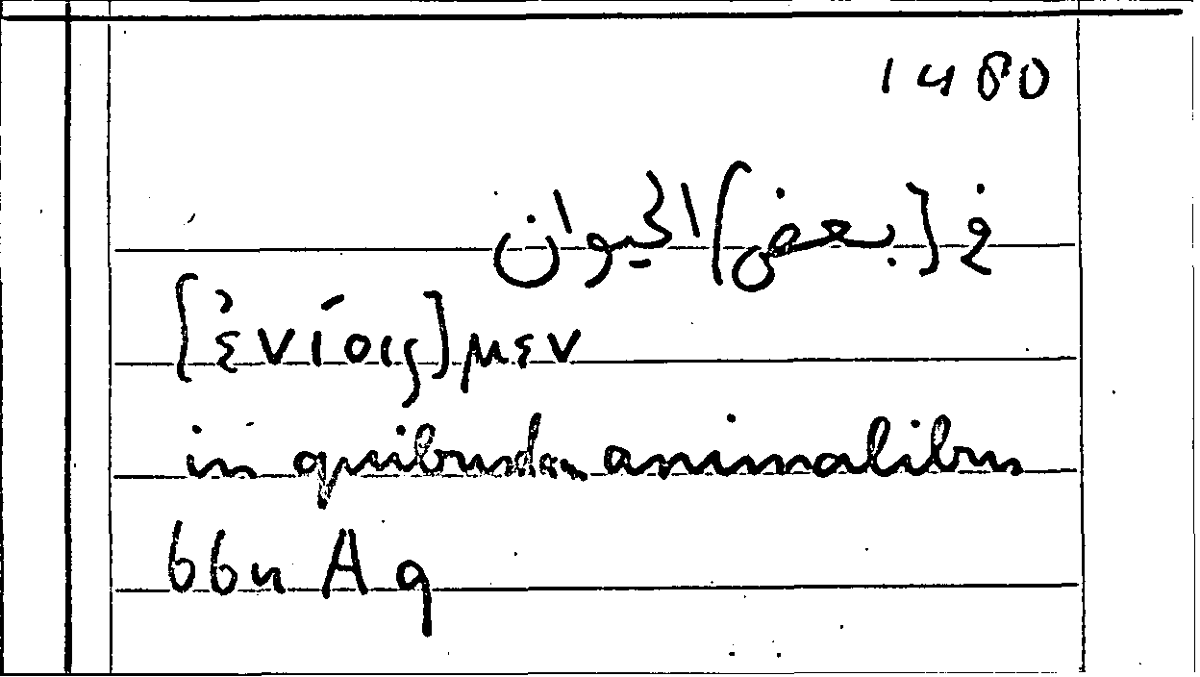 1480
في [بعض] الحيوان
[ἐνίοις] μεν
in quibusdam animalibus
66n A 9